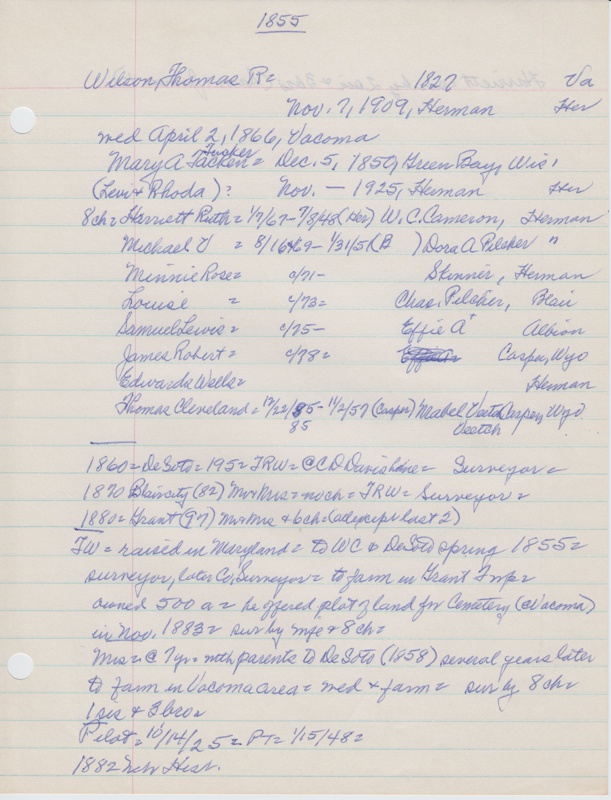 1855
Wilson, Thomas R = 1827 Va
Nov. 7, 1909, Herman Her
wed April 2, 1866, Vacoma
Tucker
Mary A = Dec. 5, 1850, Green Bay, Wis.
(Levi & Rhoda)? Nov. — 1925, Herman Her
8ch = Harriett Ruth = 1/7/67 - 7/8/48 (Her) W. C. Cameron, Herman
Michael V = 8/16/69 - 1/31/51 (B ) Dora A Pilcher "
Minnie Rose = c/71- Skinner, Herman
Louise = c/73 = Chas. Pilcher, Blair
Samuel Lewis = c/75- Effie A Albion
James Robert = c/78 = Casper, Wyo
Edwards Wells = Herman
Thomas Cleveland = 12/22/85 - 11/2/57 (Casper) Mabel Veetch Casper, Wyo
85 Veetch
1860 = DeSoto = 195 = TRW = @ C D Davis = Surveyor =
1870 Blair city (82) Mr & Mrs = no ch = TRW = Surveyor =
1880 = Grant (97) Mr & Mrs & 6ch = (all except last 2)
TW = raised in Maryland = to WC & DeSoto spring 1855 =
surveyor, later Co. Surveyor = to farm in Grant Twp =
owned 500 a = he offered plot of land for Cemetery (@ Vacoma)
in Nov. 1883 = sur by wife & 8ch =
Mrs = @ 7 yr = with parents to DeSoto (1858) several years later
to farm in Vacoma area = wed & farm = sur by 8ch =
1 sis & 3 bro =
Pilot = 10/14/25 = PT = 1/15/48 =
1882 Neb Hist.